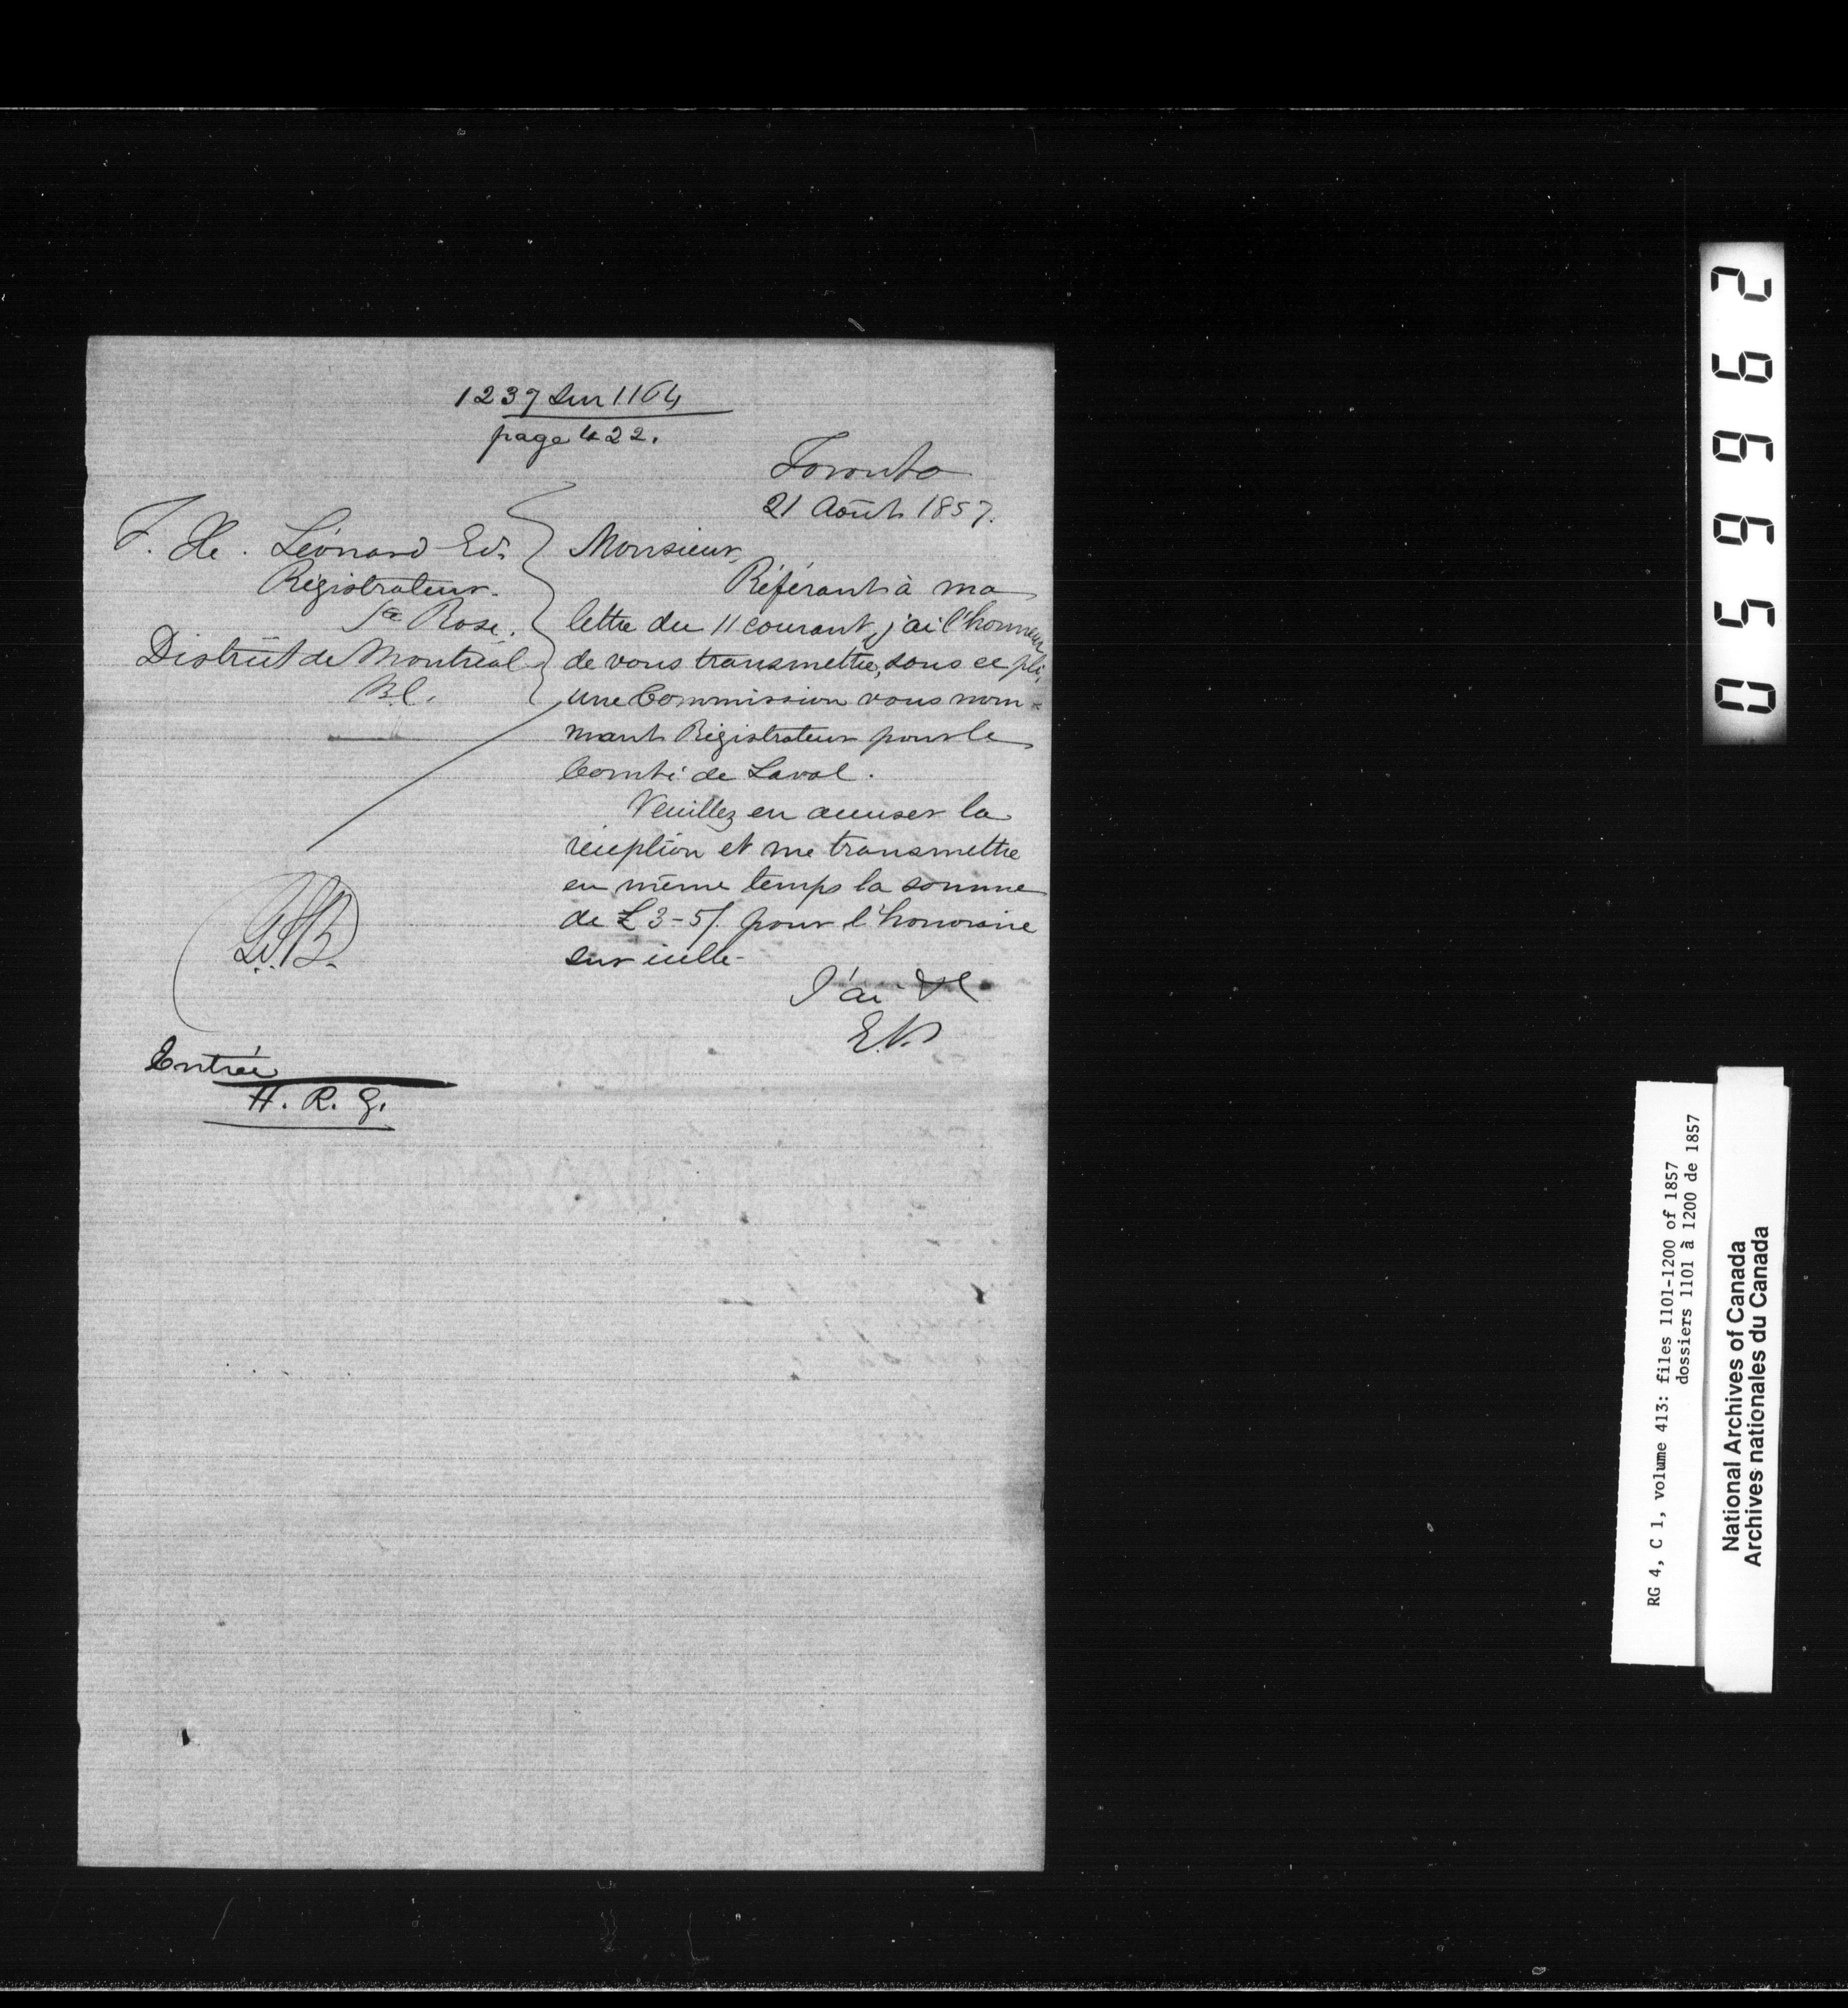 1237 sur 1164
page 422.
Toronto
21 Août 1857.
F. He. Léonard Ecr.
Régistrateur.
Ste Rose.
District de Montréal
B.C.
Monsieur,
Référant à ma
lettre du 11 courant, j'ai l'honneur
de vous transmettre, sous ce pli,
une Commission vous nom=
mant Régistrateur pour le
Comté de Laval.
Veuillez en accuser la
réception et me transmettre
en même temps la somme
de £3-5/. pour l'honoraire
sur icelle-
J'ai &c
E.P.
Entrée
H. R. G.
059662
RG 4, C 1, volume 413: files 1101-1200 of 1857
dossiers 1101 à 1200 de 1857
National Archives of Canada
Archives nationales du Canada